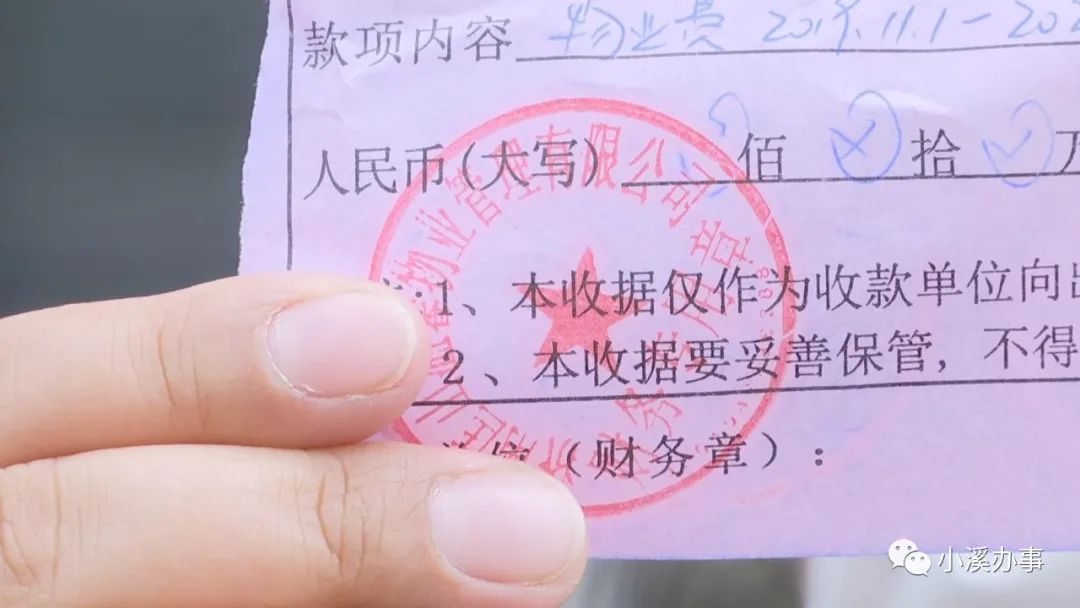 款项内容 物业费 2019.11.1—202
人民币(大写) 佰 拾 万
1、本收据仅作为收款单位向出
2、本收据要妥善保管，不得
（财务章）：
物业管理有限公司
财务专用章
小溪办事